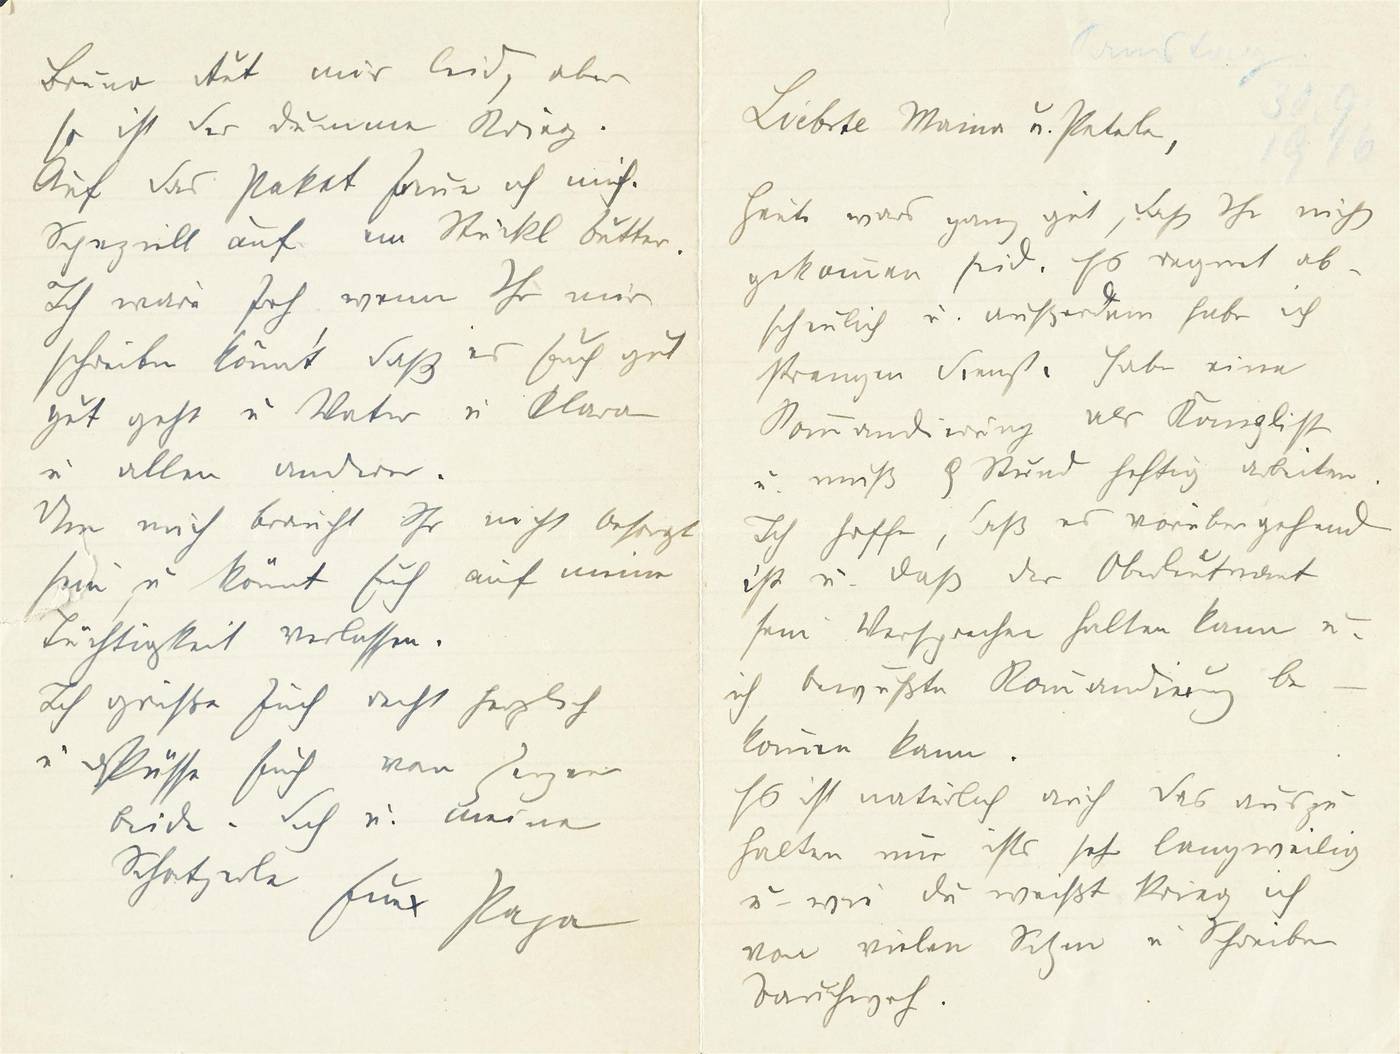 Samstag
30.9
1916
Liebste Mama u. Peterle,
Heute wars ganz gut, daß Ihr nicht
gekommen seid. Es regnet ab-
scheulich u. außerdem habe ich
strengen Dienst. Habe eine
Kommandierung als Kanzlist
u. muß 9 Stund heftig arbeiten.
Ich hoffe, daß es vorübergehend
ist u. daß der Oberleutnant
sein Versprechen halten kann u.
ich bewußte Kommandierung be-
kommen kann.
Es ist natürlich auch das auszu
halten nur ists sehr langweilig
u. wie Du weißt krieg ich
von vielen Sitzen u Schreiben
Bauchweh.
Bruno tut mir leid, aber
so ist der dumme Krieg.
Auf das Paket freue ich mich.
Speziell auf ein Stückl Butter.
Ich wäre froh wenn Ihr mir
schreiben könnt daß es Euch gut
gut geht u Vater u Klara
u allen anderen.
Um mich braucht Ihr nicht besorgt
sein, u könnt Euch auf meine
Tüchtigkeit verlassen.
Ich grüße Euch recht herzlich
u küsse Euch von Herzen
beide. Dich u. meine
Schatzerle Euer Papa